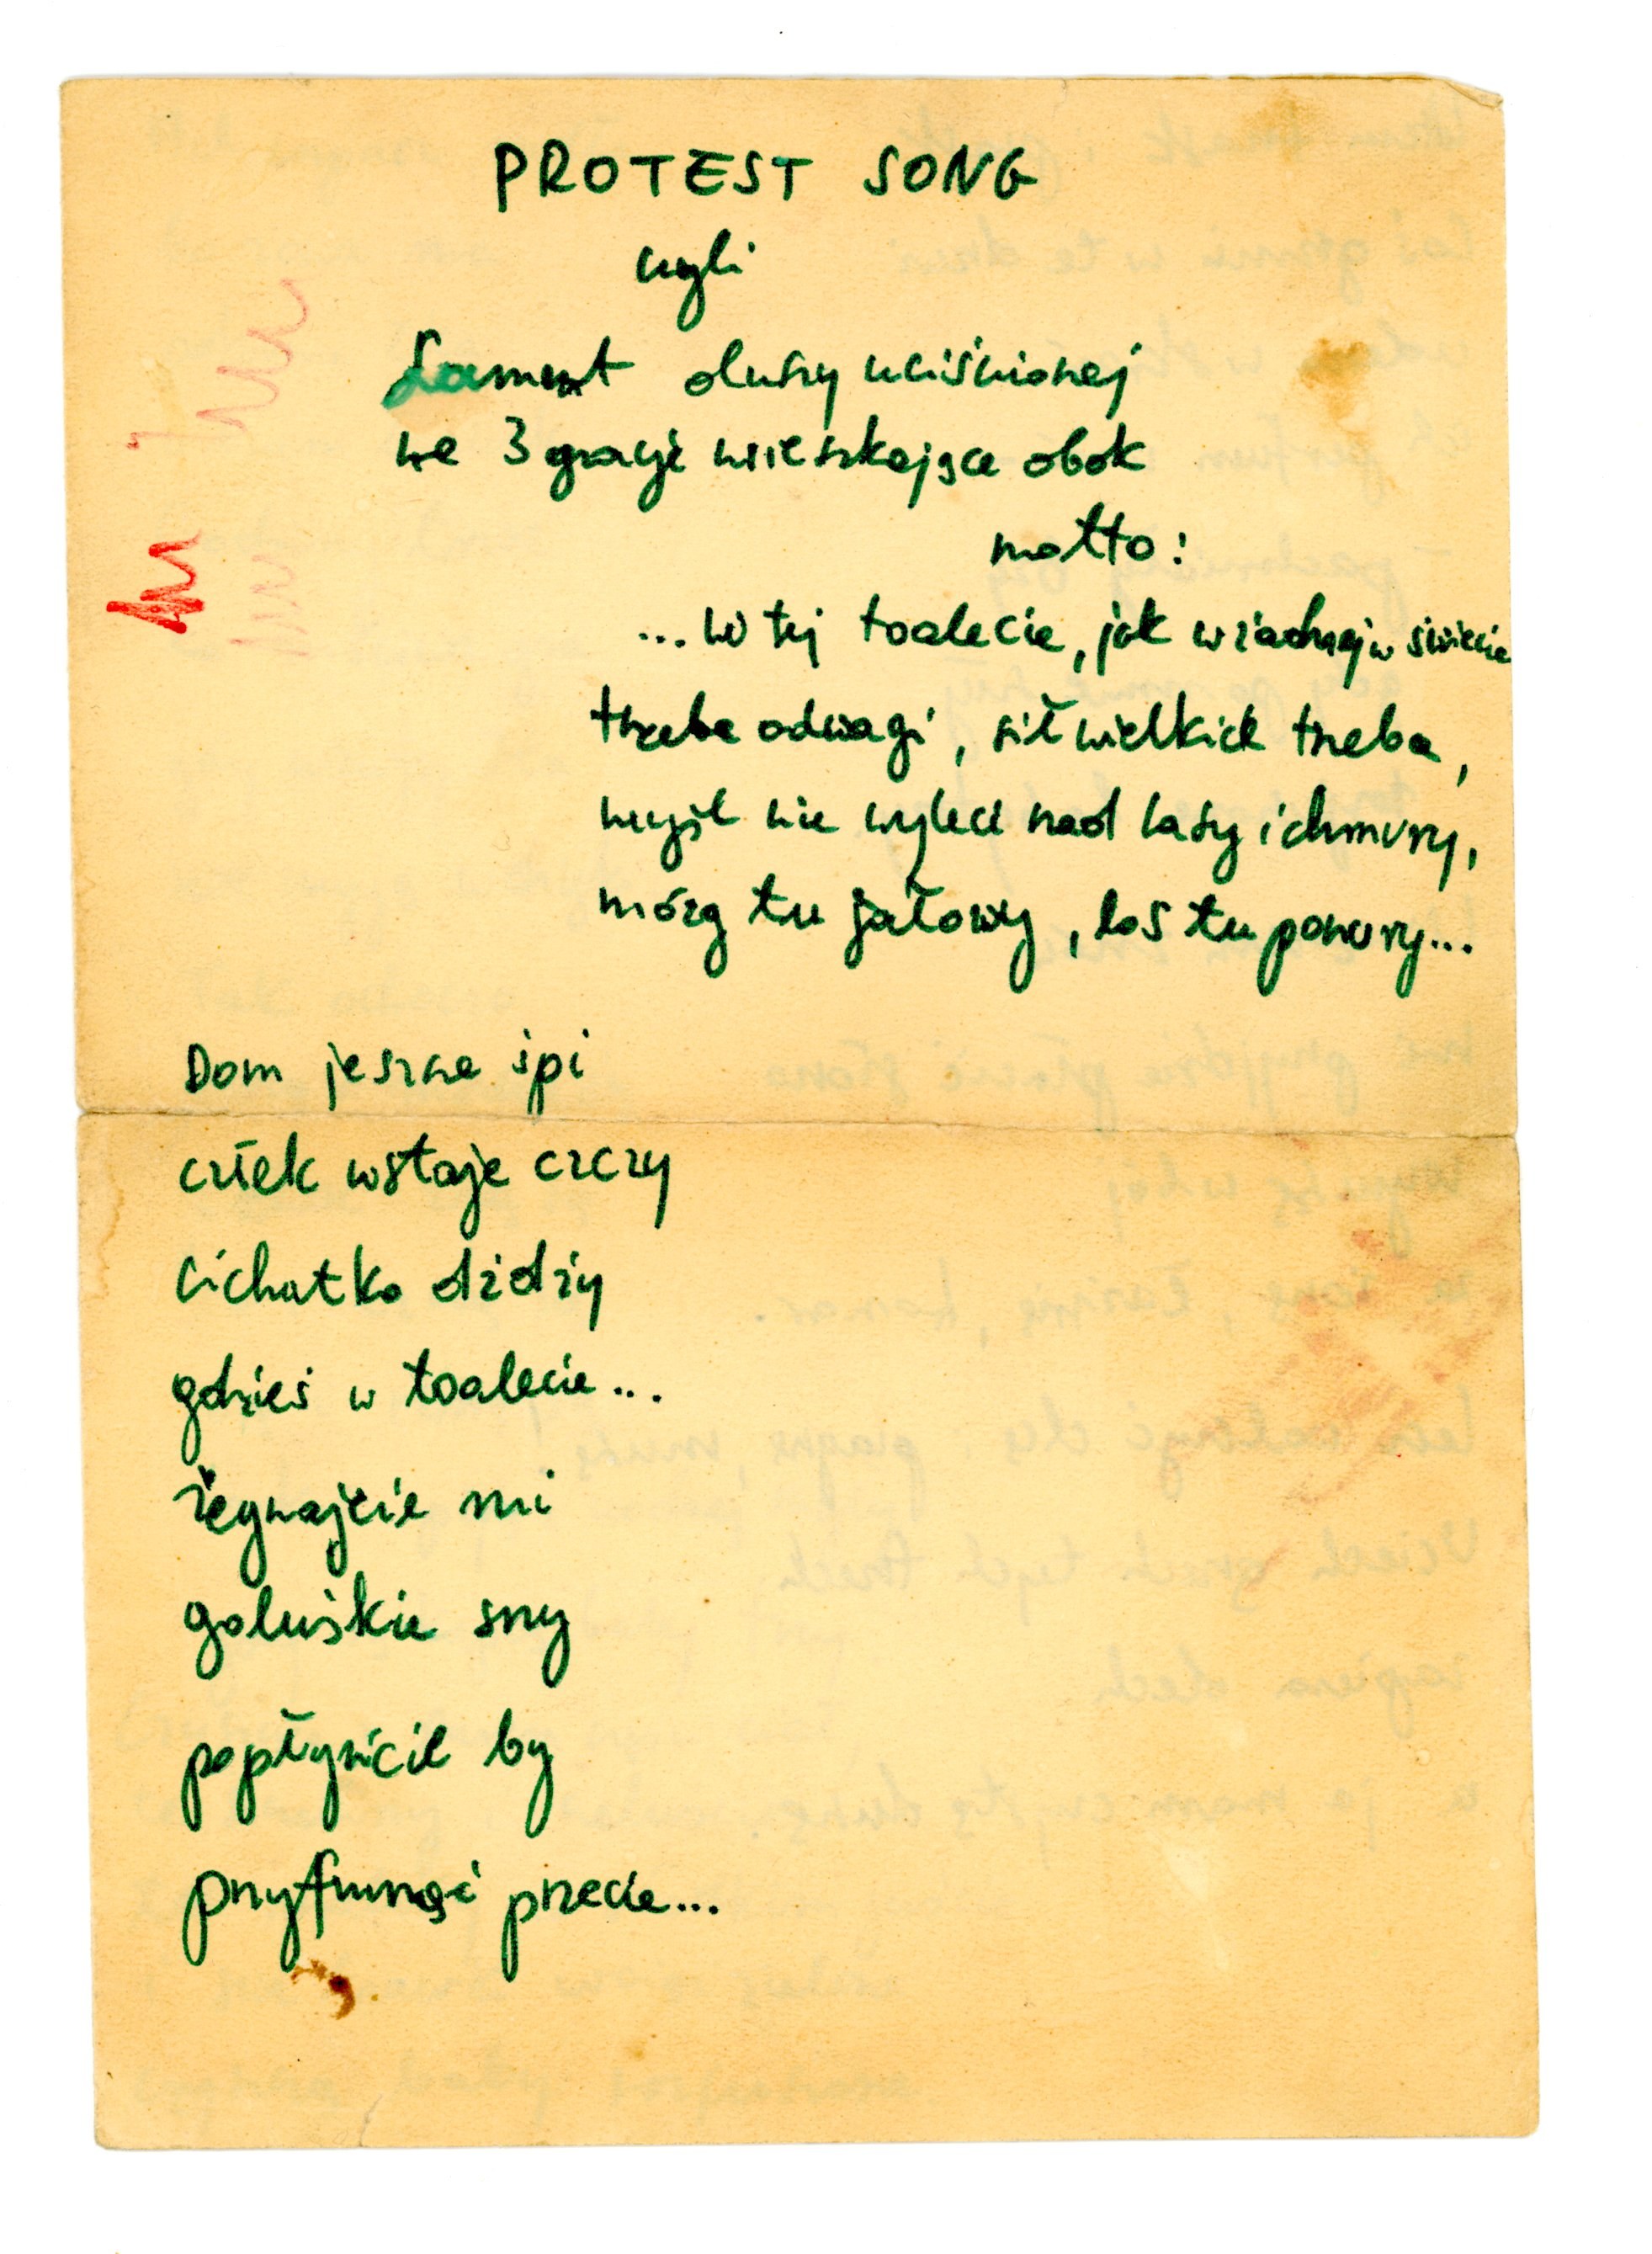 PROTEST SONG
czyli
Lament duszy uciśnionej
na 3 gracje mieszkające obok
motto:
...W tej toalecie, jak w żadnej w świecie
trzeba odwagi, sił wielkich trzeba,
myśl nie wyleci nad lasy i chmury,
mózg tu jałowy, los tu ponury...
Dom jeszcze śpi
człek wstaje czczy
cichutko drży
gdzieś w toalecie...
żegnajcie mi
goluśkie sny
popłynęliście by
przyfrunąć przecie...